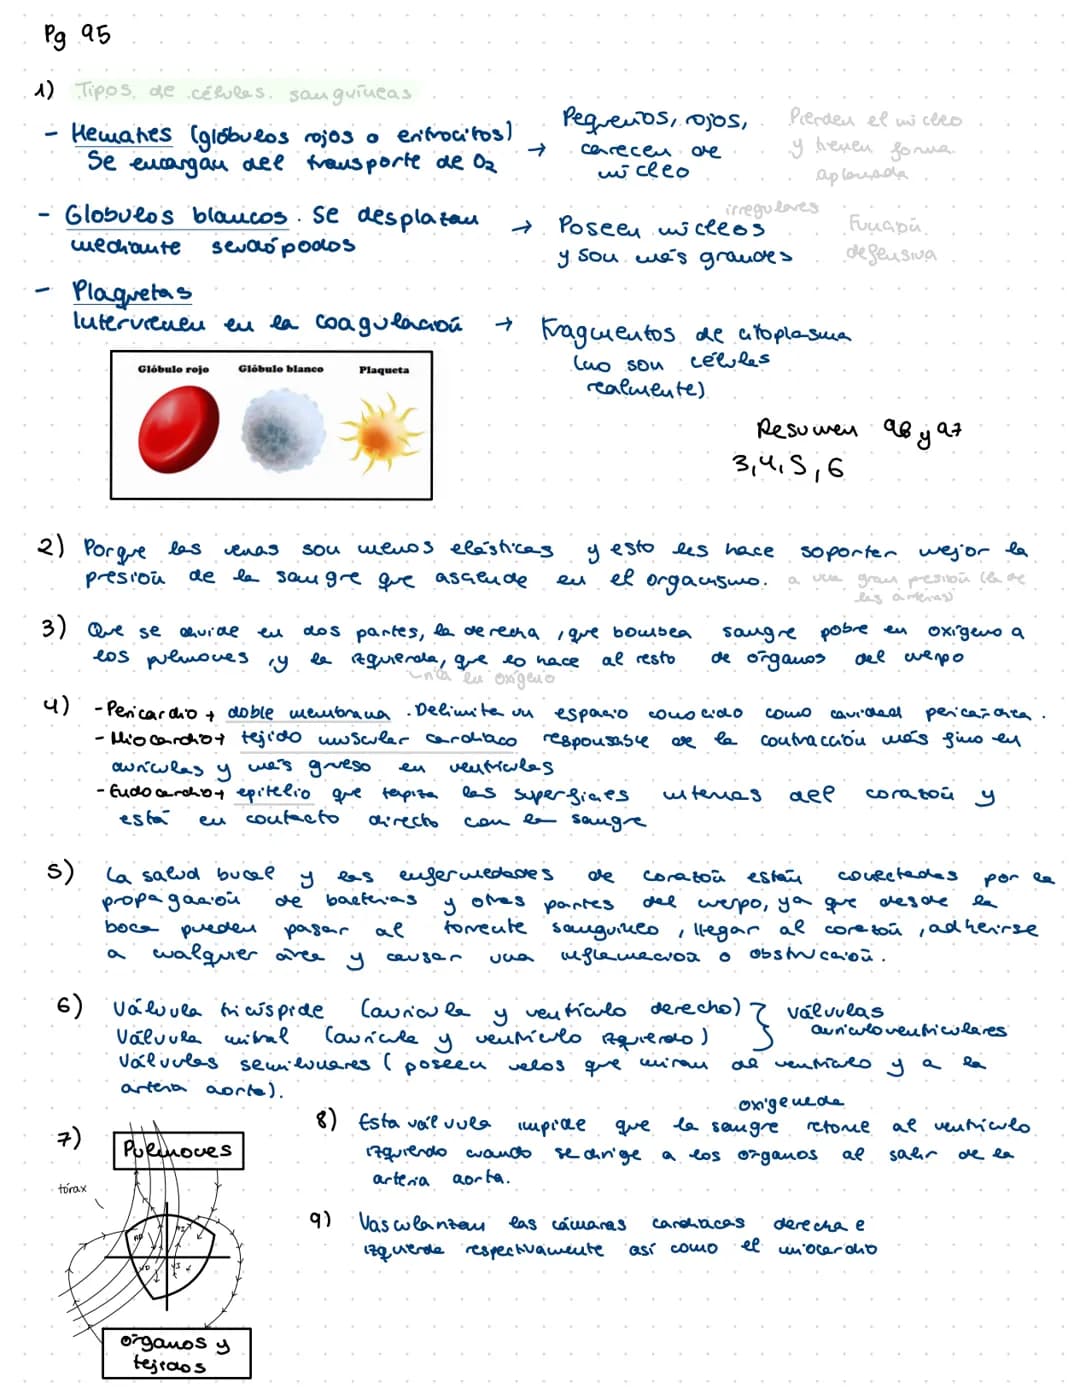 Pg 95
1) Tipos de células sanguíneas
- Hematíes (glóbulos rojos o eritrocitos)
Se encargan del transporte de O2
→ Pequeños, rojos,
carecen de
núcleo
Pierden el núcleo
y tienen forma
aplanada
- Globulos blancos. Se desplazan
mediante seudópodos
irregulares
→ Poseen núcleos
y son más grandes
Función
defensiva
- Plaquetas
Intervienen en la coagulación → Fragmentos de citoplasma
(no son células
realmente)
Glóbulo rojo Glóbulo blanco Plaqueta
Resumen 98 y 97
3,4,5,6
2) Porque las venas son menos elásticas y esto les hace soporten mejor la
presión de la sangre que asciende en el organismo. a una gran presión (la de
las arterias)
3) Que se divide en dos partes, la derecha, que bombea sangre pobre en oxígeno a
los pulmones, y la izquierda, que lo hace al resto de órganos del cuerpo
rica en oxígeno
4) - Pericardio → doble membrana. Delimita un espacio conocido como cavidad pericárdica.
- Miocardio → tejido muscular cardíaco responsable de la contracción más fino en
aurículas y más grueso en ventrículos
- Endocardio → epitelio que tapiza las superficies internas del corazón y
está en contacto directo con la sangre
5) La salud bucal y las enfermedades de corazón están conectadas por la
propagación de bacterias y otras partes del cuerpo, ya que desde la
boca pueden pasar al torrente sanguíneo, llegar al corazón, adherirse
a cualquier área y causar una inflamación o obstrucción.
6) Válvula tricúspide (aurícula y ventrículo derecho) } válvulas
Válvula mitral (aurícula y ventrículo izquierdo) auriculoventriculares
Válvulas semilunares (poseen velos que miran al ventrículo y a la
arteria aorta).
7) Pulmones
tórax
AD AI
VD VI
órganos y
tejidos
oxigenada
8) Esta válvula impide que la sangre retorne al ventrículo
izquierdo cuando se dirige a los órganos al salir de la
arteria aorta.
9) Vascularizan las cámaras cardíacas derecha e
izquierda respectivamente así como el miocardio